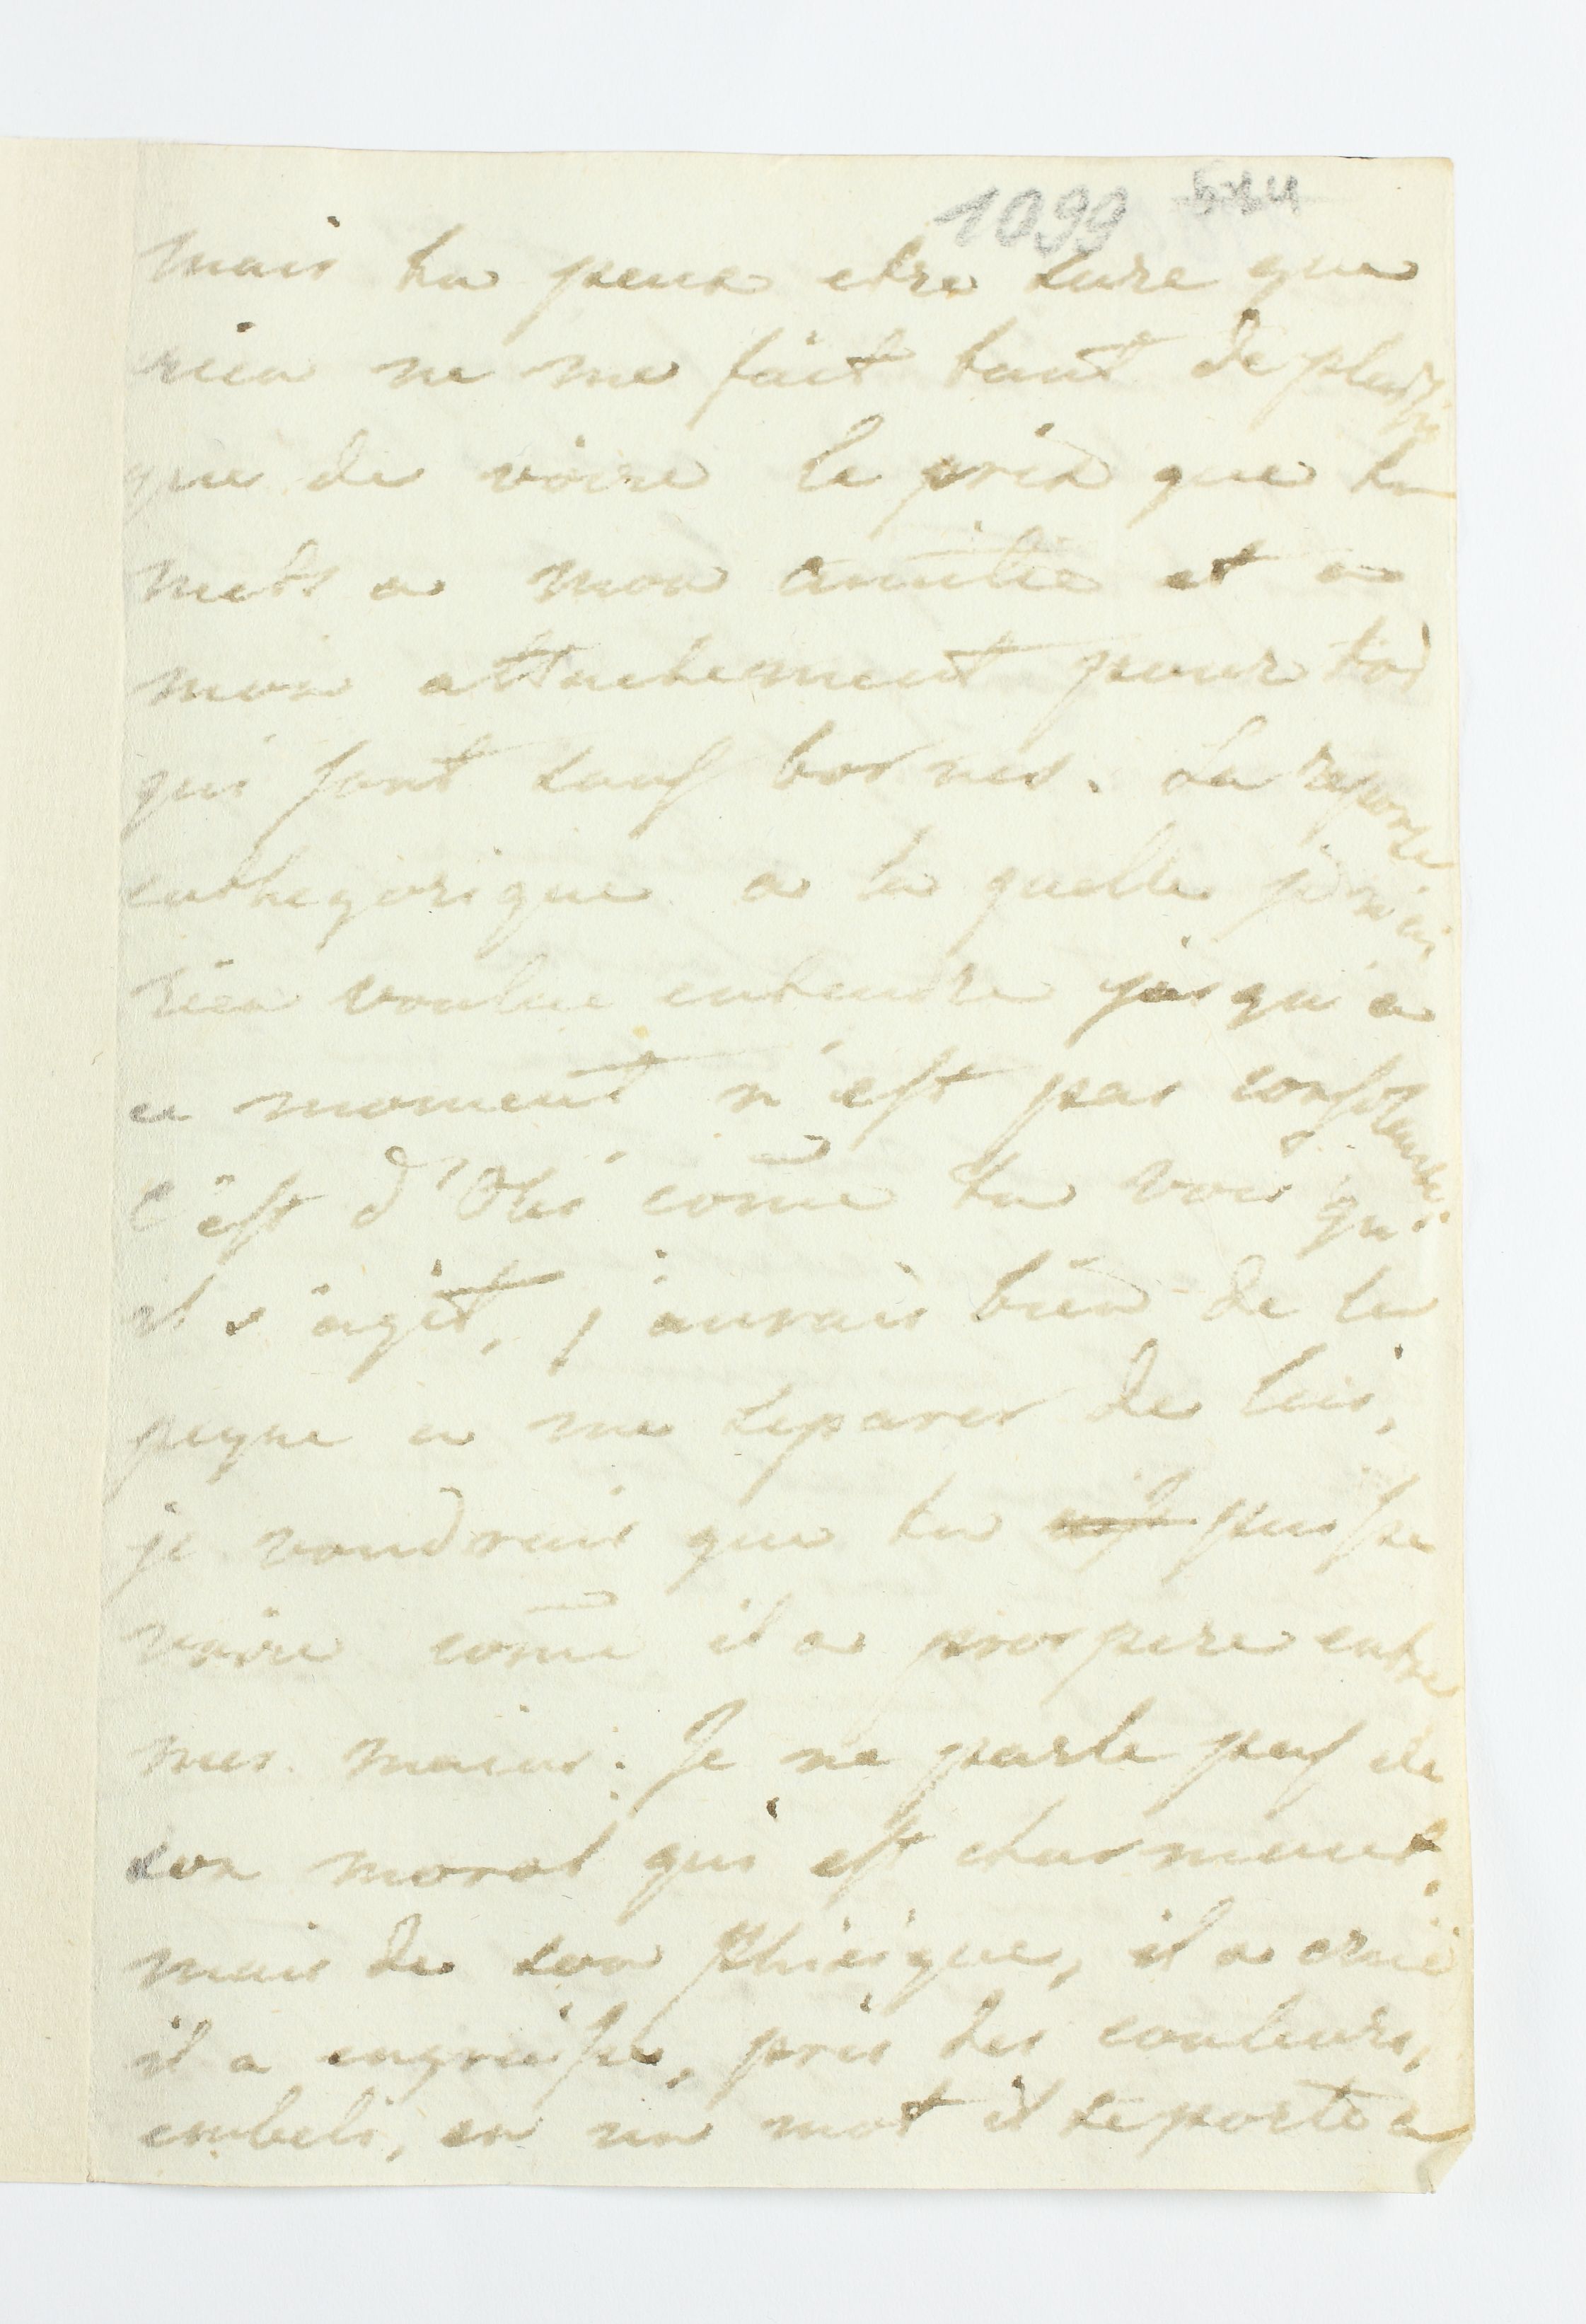 1099
mais tu peux etre sure que
rien ne me fait tant de plaisir
que de voire le prix que tu
mets a mon amitie et a
mon attachement pour toi
qui sont sans bornes. La reponse
cathegorique a la quelle je n'ai
rien voulue entendre jusqu'a
ce moment n'est pas consolante.
C'est d'Otti come tu vois qu'
il s'agit, j'aurais bien de la
peyne a me separer de luis,
je voudrais que tu puisse
voire come il a prospere entre
mes mains. Je ne parle pas de
son moral qui est charment,
mais de son Phisique, il a crue
il a engraisse, pris des couleurs,
embeli, en un mot il se porte a